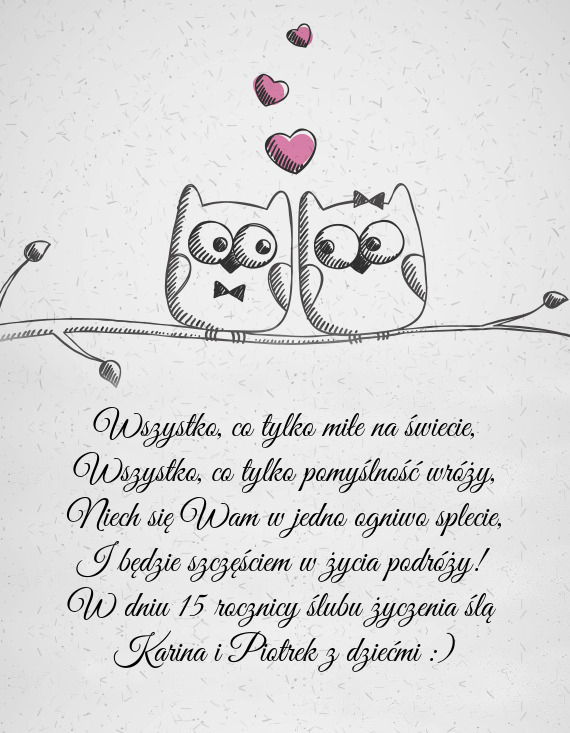 Wszystko, co tylko miłe na świecie,
Wszystko, co tylko pomyślność wróży,
Niech się Wam w jedno ogniwo splecie,
I będzie szczęściem w życia podróży!
W dniu 15 rocznicy ślubu życzenia ślą
Karina i Piotrek z dziećmi :)